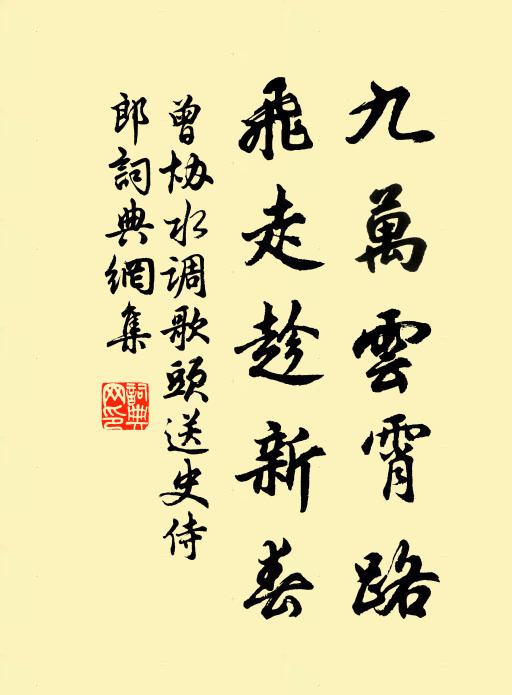 九萬雲霄路
飛走趁新春
曾协水调歌頭送史侍
郎詞典網集
詞典
网印